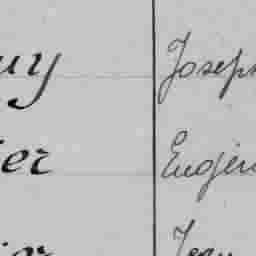 uy Joseph
ier Eugèn
ier Jean